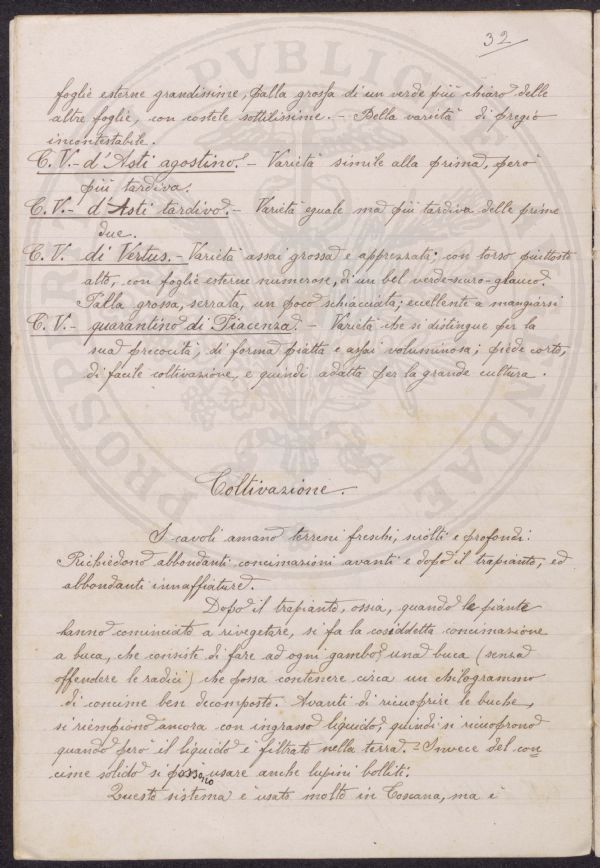 32
foglie esterne grandissime, palla grossa di un verde più chiaro delle
altre foglie, con costole sottilissime. - Bella varietà di pregio
incontestabile.
C. V. - d'Asti agostino. - Varietà simile alla prima, però
più tardiva.
C. V. - d'Asti tardivo. - Varietà eguale ma più tardiva delle prime
due.
C. V. di Vertus. - Varietà assai grossa e apprezzata; con torso piuttosto
alto, con foglie esterne numerose, di un bel verde-scuro-glauco.
Palla grossa, serrata, un poco schiacciata; eccellente a mangiarsi
C. V. - quarantino di Piacenza. - Varietà che si distingue per la
sua precocità, di forma piatta e assai voluminosa; piede corto,
di facile coltivazione, e quindi adatta per la grande cultura.
Coltivazione.
I cavoli amano terreni freschi, sciolti e profondi.
Richiedono abbondanti concimazioni avanti e dopo il trapianto, ed
abbondanti innaffiature.
Dopo il trapianto, ossia, quando le piante
hanno cominciato a rivegetare, si fa la cosiddetta concimazione
a buca, che consiste di fare ad ogni gambo una buca (senza
offendere le radici) che possa contenere circa un chilogrammo
di concime ben decomposto. Avanti di ricuoprire le buche,
si riempiono ancora con ingrasso liquido, quindi si ricuoprono
quando pero il liquido è filtrato nella terra. - Invece del con-
cime solido si possono usare anche lupini bolliti.
Questo sistema è usato molto in Toscana, ma è
PVBLICAE PROSPERITATI AVGENDAE